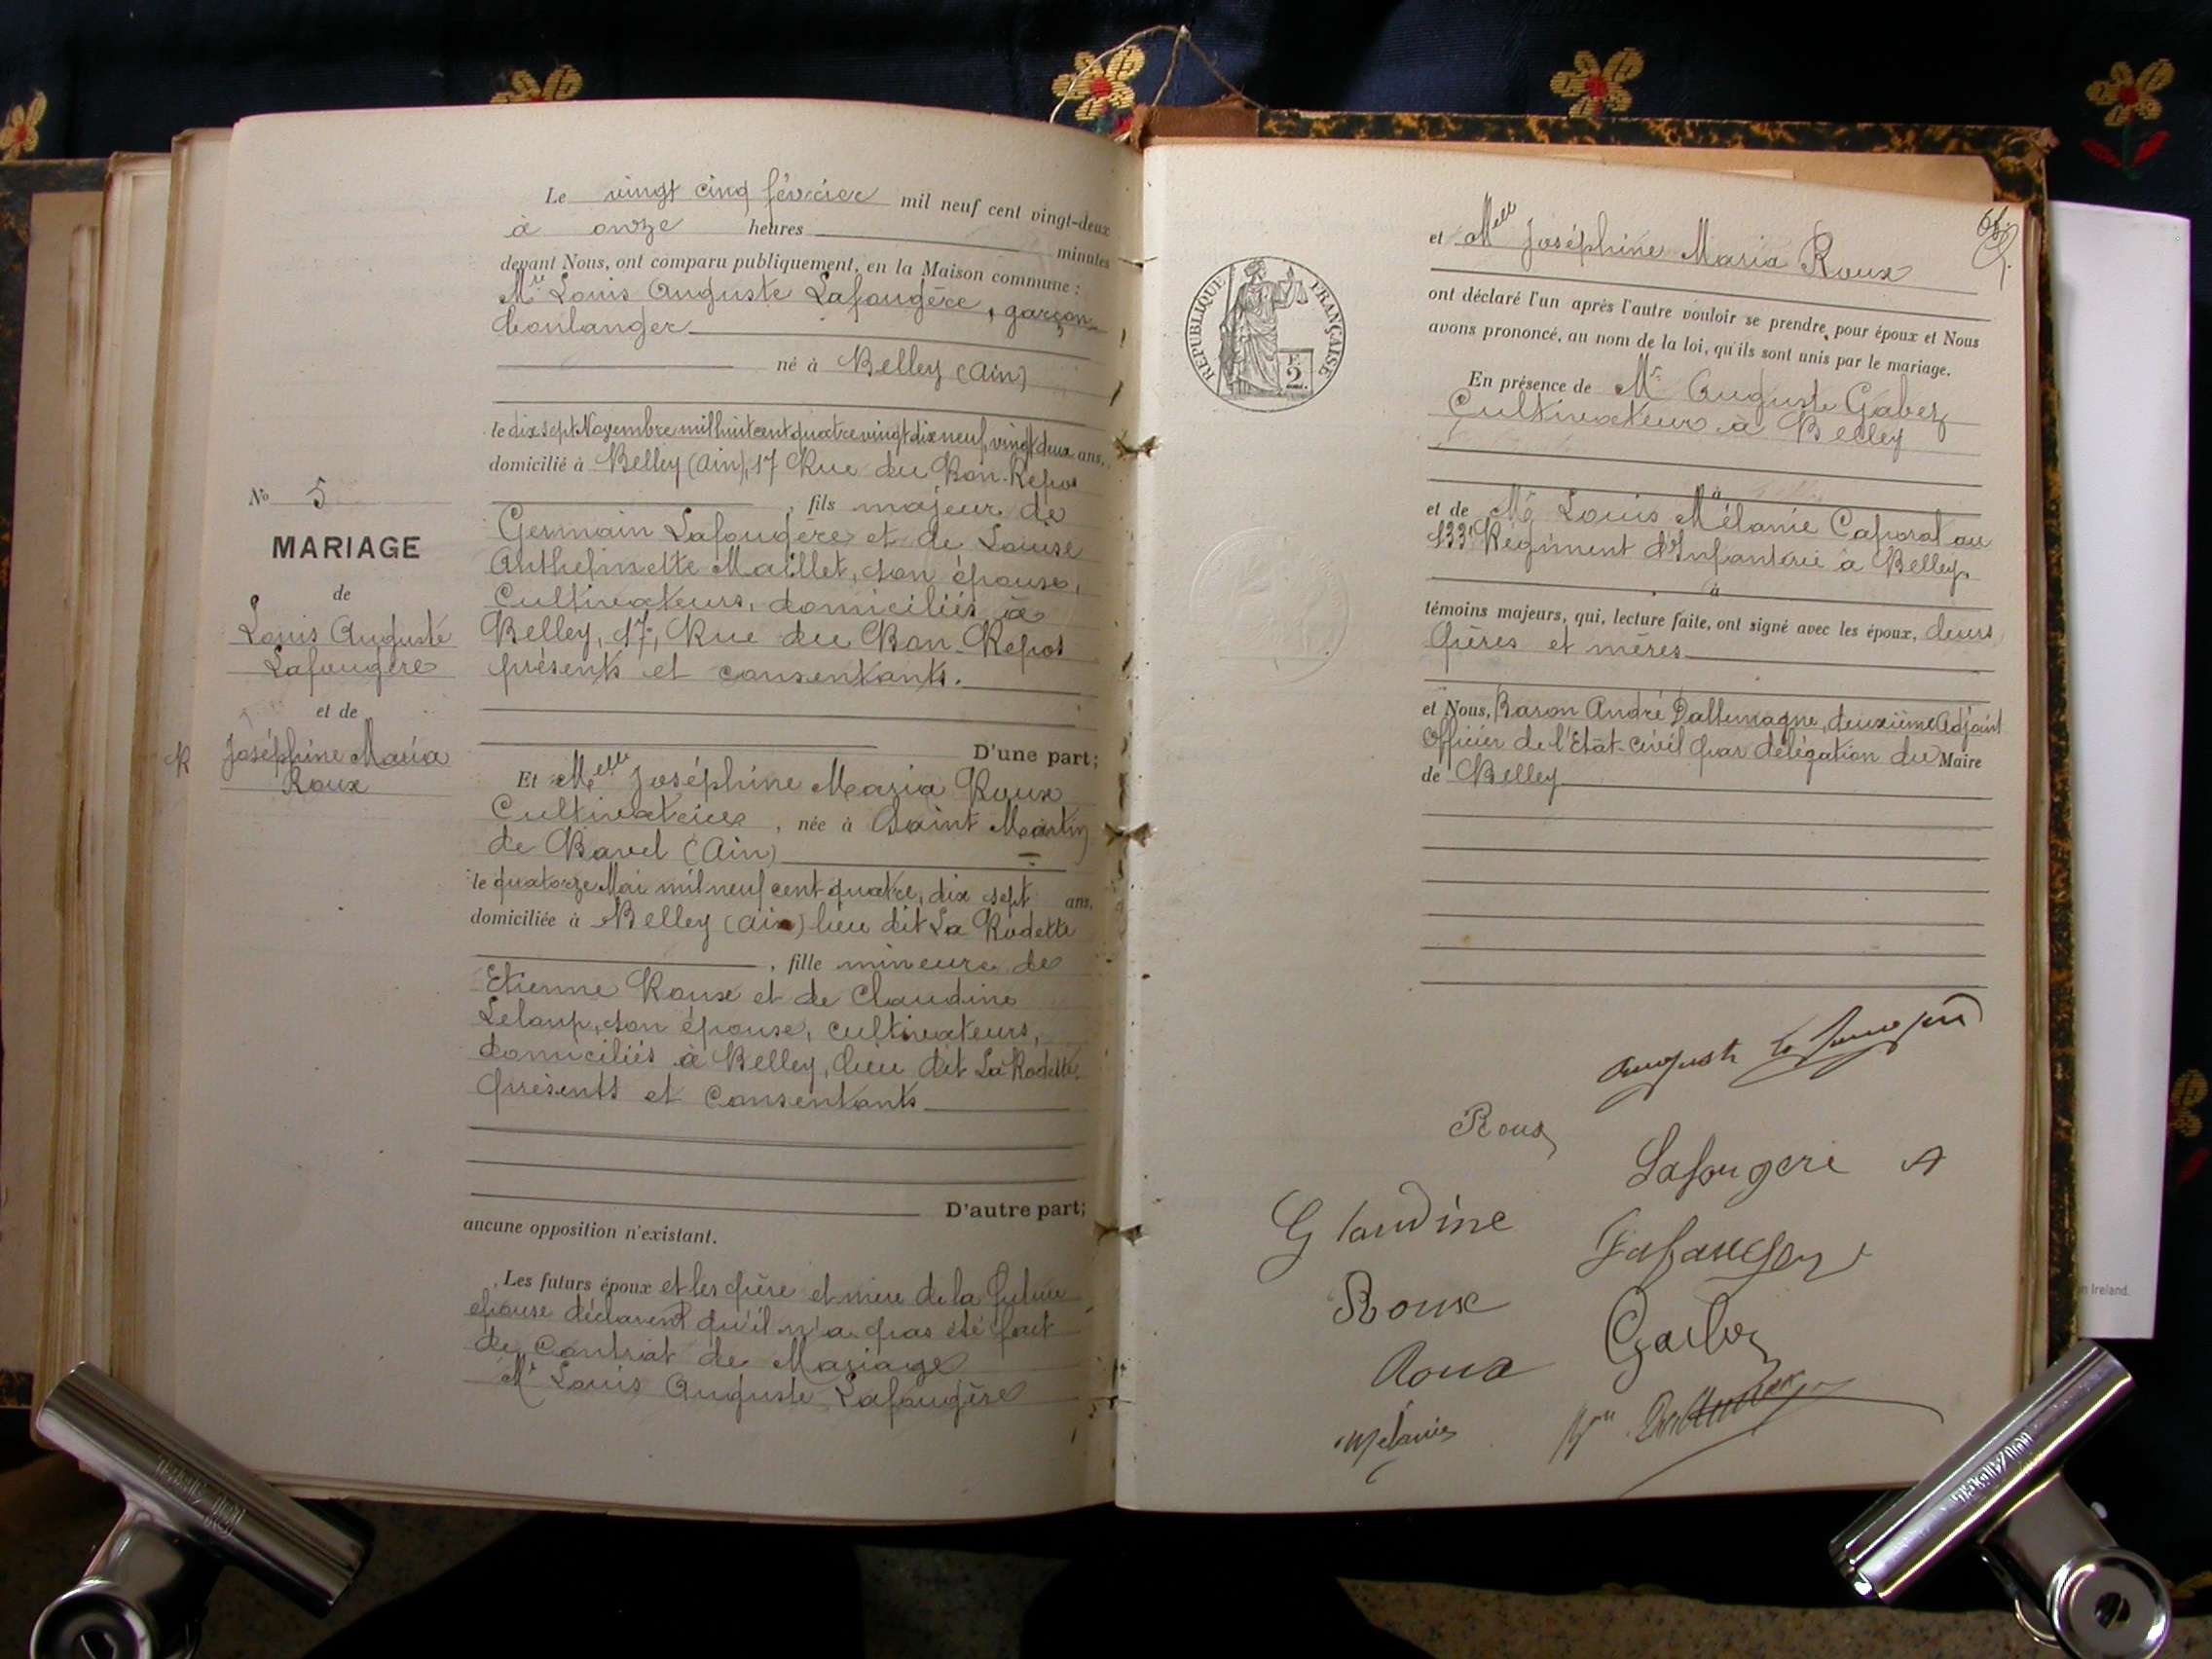 Le vingt cinq février mil neuf cent vingt-deux
à onze heures minutes
devant Nous, ont comparu publiquement, en la Maison commune :
Mr Louis Auguste Lafougère, garçon
boulanger
né à Belley (Ain)
le dix sept Novembre mil huit cent quatre vingt dix neuf, vingt deux ans,
domicilié à Belley (Ain), 17 Rue du Bon-Repos
, fils majeur de
Germain Lafougère et de Louise
Anthelmette Maillet, son épouse,
Cultivateurs, domiciliés à
Belley, 17, Rue du Bon-Repos
présents et consentants.
D'une part;
No 5
MARIAGE
de
Louis Auguste
Lafougère
et de
Joséphine Maria
Roux
Et Melle Joséphine Maria Roux
Cultivatrice, née à Saint Martin
de Bavel (Ain)
le quatorze Mai mil neuf cent quatre, dix sept ans,
domiciliée à Belley (Ain) lieu dit La Rodette
, fille mineure de
Etienne Roux et de Claudine
Leloup, son épouse, cultivateurs,
domiciliés à Belley, lieu dit La Rodette,
présents et consentants
D'autre part;
aucune opposition n'existant.
Les futurs époux et les père et mère de la future
épouse déclarent qu'il n'a pas été fait
de Contrat de Mariage
Mr Louis Auguste Lafougère
et Melle Joséphine Maria Roux
ont déclaré l'un après l'autre vouloir se prendre pour époux et Nous
avons prononcé, au nom de la loi, qu'ils sont unis par le mariage.
REPUBLIQUE FRANÇAISE
2
En présence de Mr Auguste Gabet
Cultivateur à Belley
à
et de Mr Louis Mélanie Caporal au
133e Régiment d'Infanterie à Belley
à
témoins majeurs, qui, lecture faite, ont signé avec les époux, leurs
pères et mères
et Nous, Baron André Dallemagne, deuxième Adjoint
Officier de l'Etat-civil par délégation du Maire
de Belley
Auguste Lafougère
Roux
Lafougere A
Claudine
Roux
Roux
Mélanie
n Ireland.